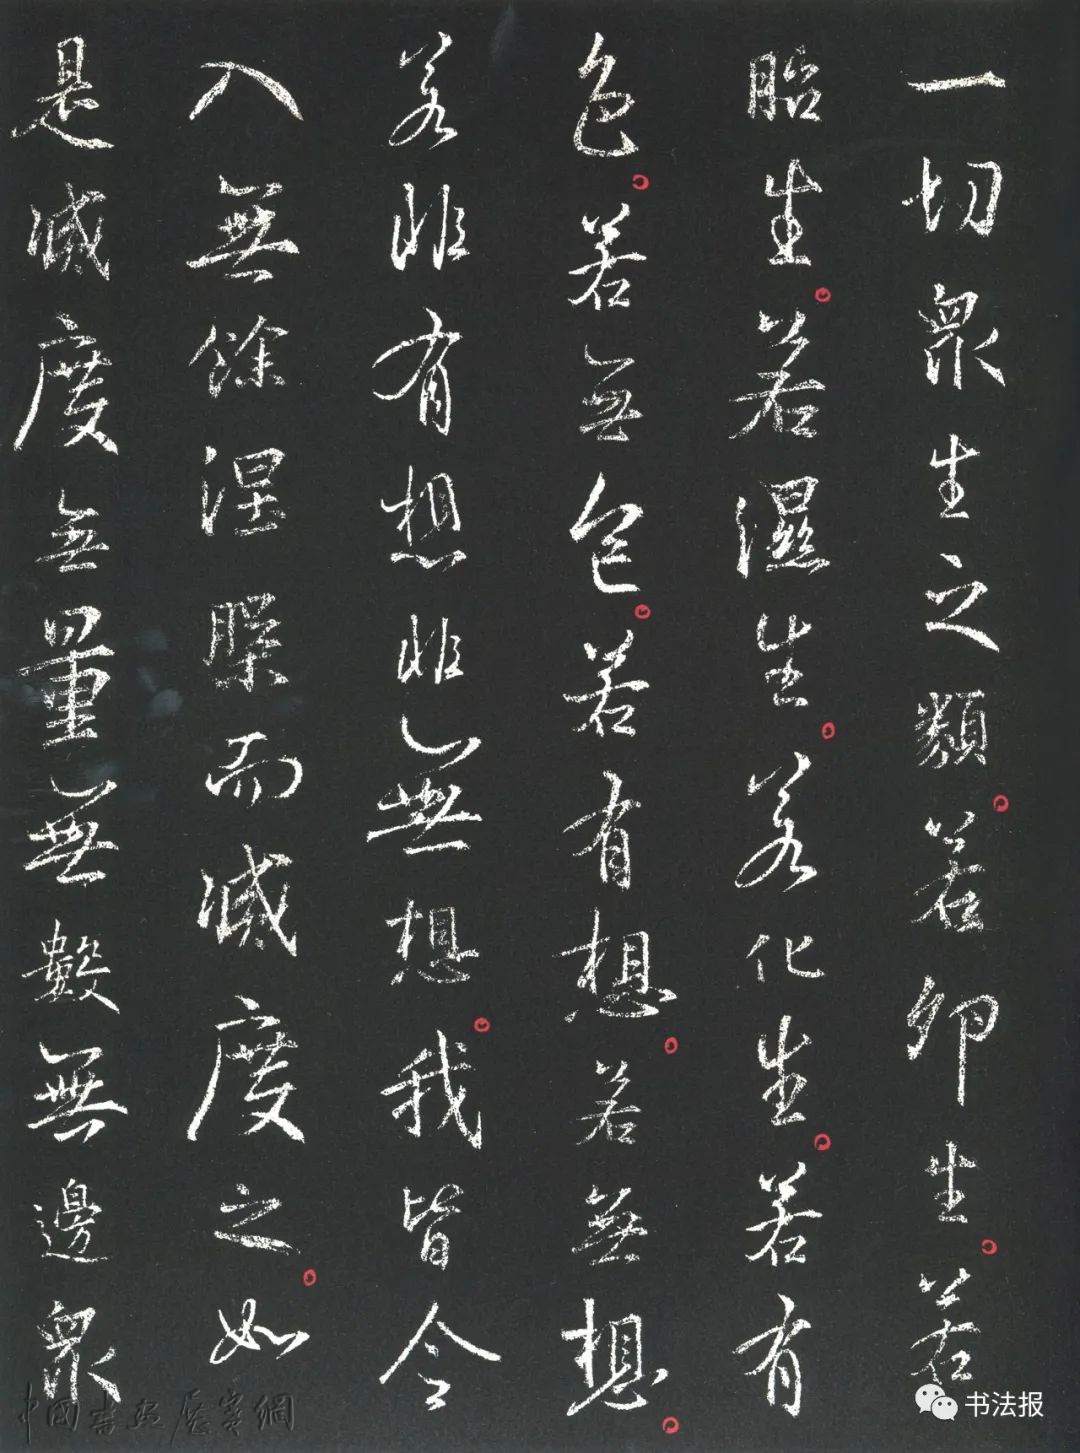 一切眾生之類。若卵生。若
胎生。若濕生。若化生。若有
色。若無色。若有想。若無想。
若非有想非無想。我皆令
入無餘涅槃而滅度之。如
是滅度無量無數無邊眾
书法报
中國書畫展賽網